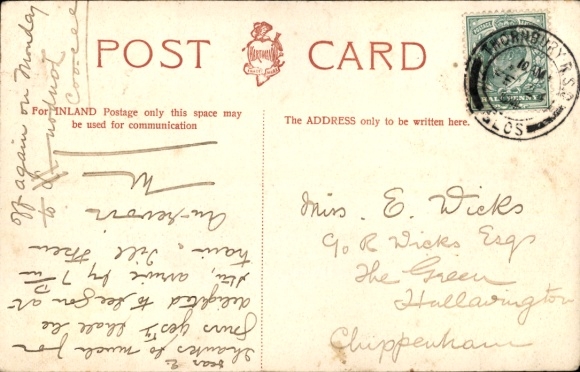 POST CARD
For INLAND Postage only this space may
be used for communication
The ADDRESS only to be written here.
HALFPENNY
THORNBURY R.S.O.
GLOS
Miss. E. Wicks
c/o R Wicks Esqr
The Green
Hullavington
Chippenham
Dear E
Thanks so much for
yours yes I shall be
delighted to see you at
stn, arrive by 7
train. Till then
Au-revoir
M
Off again on Monday
to